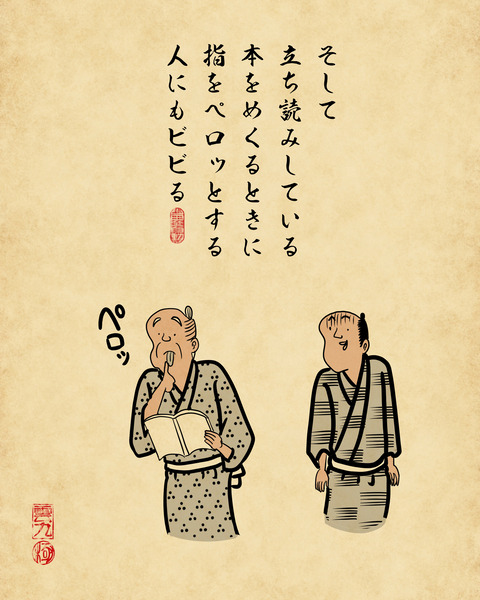 そして
立ち読みしている
本をめくるときに
指をペロッとする
人にもビビる
ペロッ